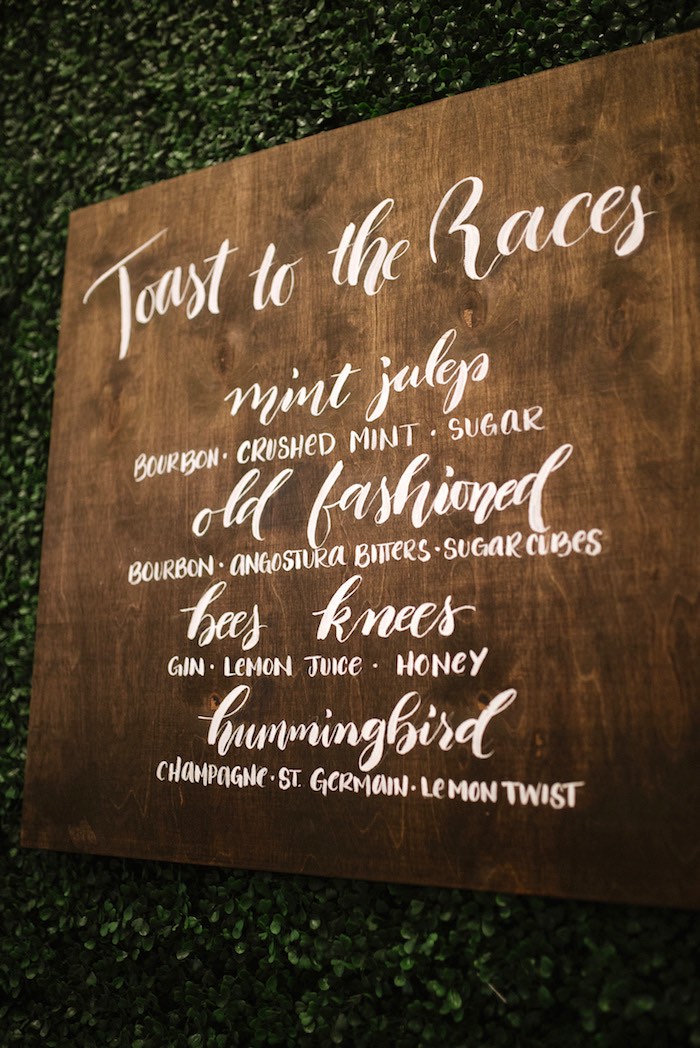 Toast to the Races
mint julep
BOURBON · CRUSHED MINT · SUGAR
old fashioned
BOURBON · ANGOSTURA BITTERS · SUGAR CUBES
bees knees
GIN · LEMON JUICE · HONEY
hummingbird
CHAMPAGNE · ST. GERMAIN · LEMON TWIST